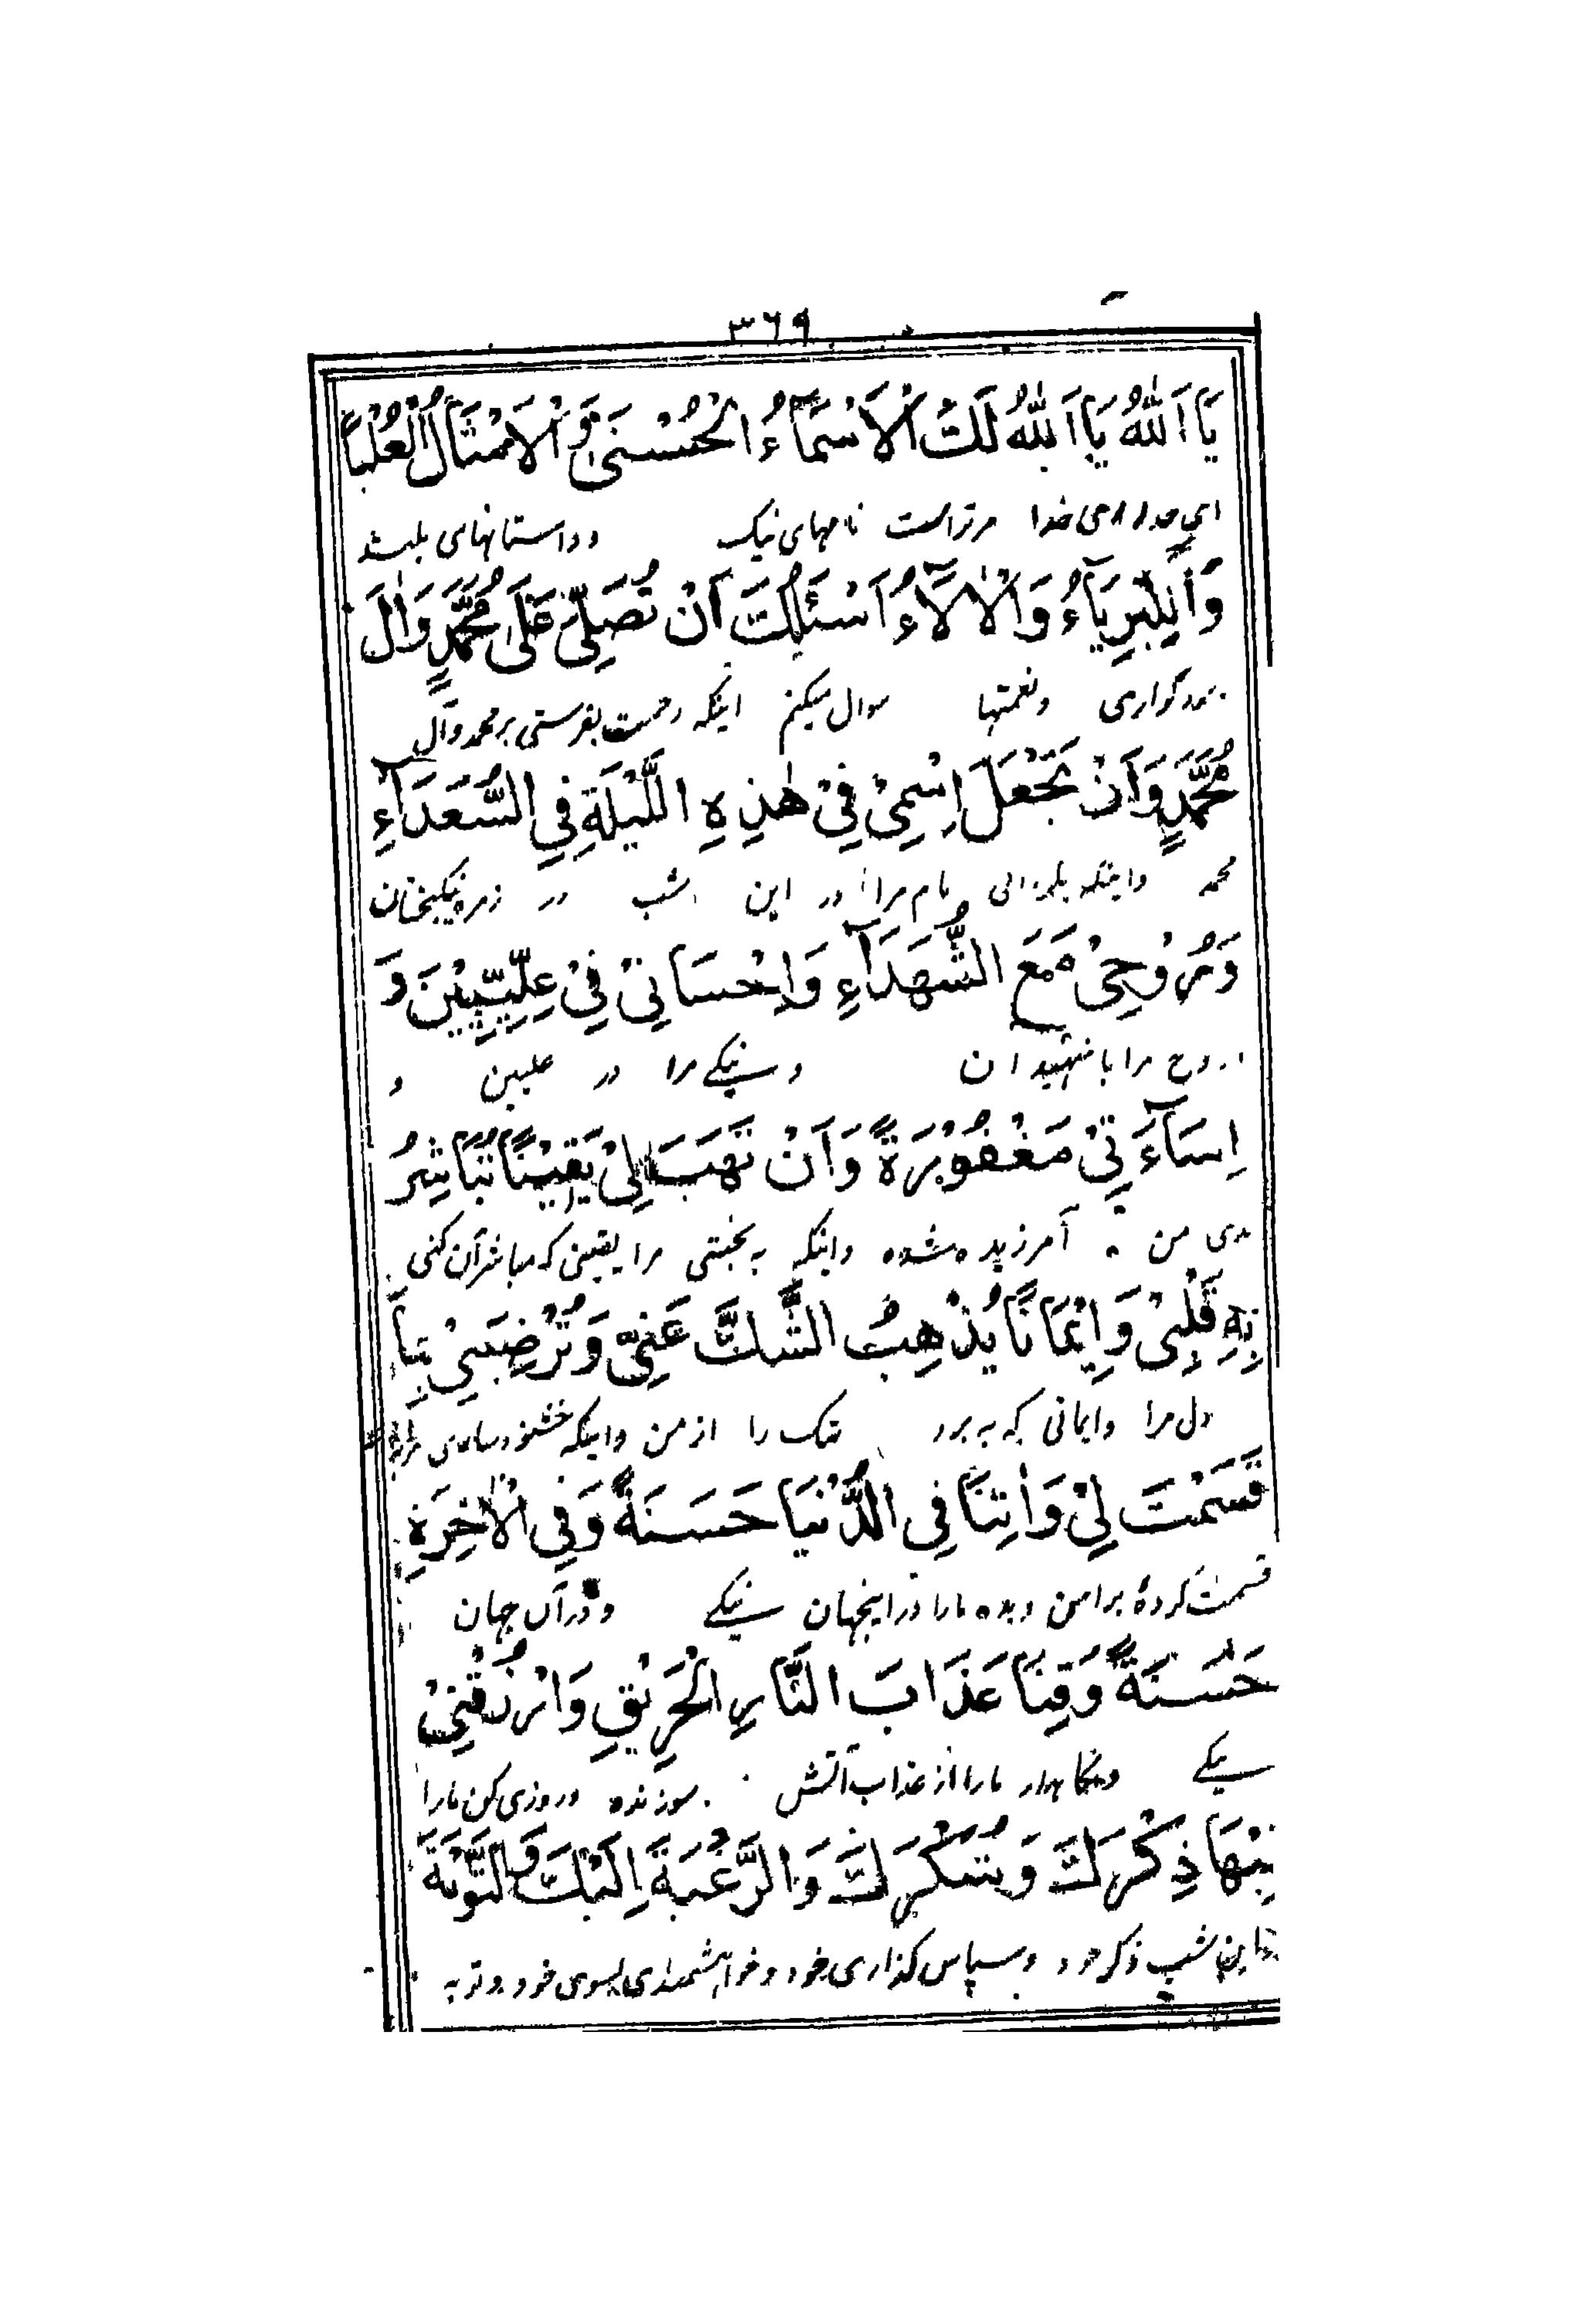 ٣٦٩
يَا اَللّٰهُ يَا اَللّٰهُ لَكَ الْاَسْمَآءُ الْحُسْنىٰ وَ الْاَمْثَالُ الْعُلْيَا
ای خدا ای خدا مرتراست نامهای نیک و داستانهای بلند
وَ الْكِبْرِيَآءُ وَ الْاٰلَآءُ اَسْئَلُكَ اَنْ تُصَلِّىَ عَلىٰ مُحَمَّدٍ وَ اٰلِ
بزرگواری و نعمتها سوال میکنم اینکه رحمت بفرستی بر محمد وآل
مُحَمَّدٍ وَ اَنْ تَجْعَلَ اِسْمِىْ فِىْ هٰذِهِ اللَّيْلَةِ فِى السُّعَدَآءِ
محمد واینکه بگردانی نام مرا در این شب در زمره نیکبختان
وَ رُوْحِىْ مَعَ الشُّهَدَآءِ وَ اِحْسَانِىْ فِىْ عِلِّيِّيْنَ وَ
و روح مرا با شهیدان و نیکی مرا در علیین و
اِسَآءَتِىْ مَغْفُوْرَةً وَ اَنْ تَهَبَ لِىْ يَقِيْنًا تُبَاشِرُ
بدی من آمرزیده شده واینکه به بخشی مرا یقینی که مباشر آن کنی
بِهِ قَلْبِىْ وَ اِيْمَانًا يُذْهِبُ الشَّكَّ عَنِّىْ وَ تُرْضِيَنِىْ بِمَا
دل مرا وایمانی که به برد شک را از من واینکه خشنود سازی مرا
قَسَمْتَ لِىْ وَ اٰتِنَا فِى الدُّنْيَا حَسَنَةً وَ فِى الْاٰخِرَةِ
قسمت کردهٔ برا من و بده مارا در اینجهان نیکی و در آن جهان
حَسَنَةً وَ قِنَا عَذَابَ النَّارِ الْحَرِيْقِ وَ ارْزُقْنِىْ
نیکی و نگاهدار مارا از عذاب آتش سوزنده و روزی کن مارا
فِيْهَا ذِكْرَكَ وَ شُكْرَكَ وَ الرَّغْبَةَ اِلَيْكَ وَ التَّوْبَةَ
این شب ذکر خود و سپاس گذاری خود و خواهشمندی بسوی خود و توبه